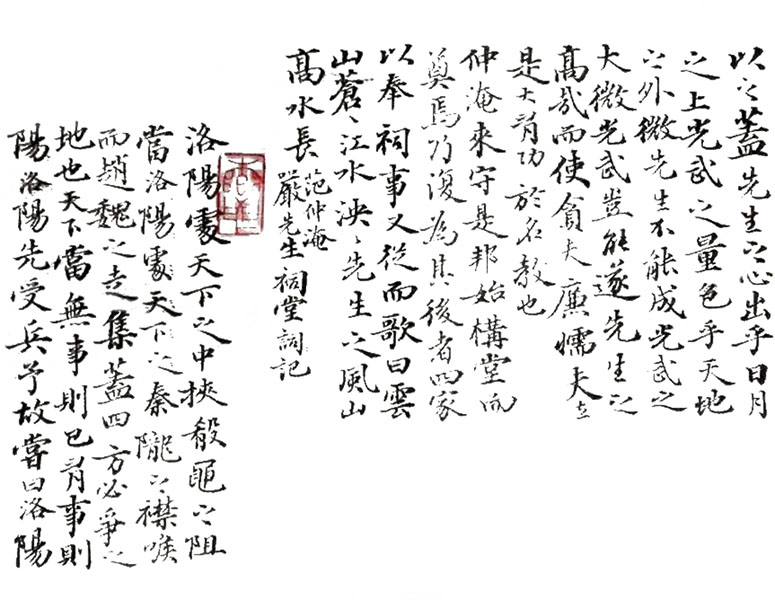 以之蓋先生之心出乎日月
之上光武之量包乎天地
之外微先生不能成光武之
大微光武豈能遂先生之
高哉而使貪夫廉懦夫立
是大有功於名教也
仲淹來守是邦始構堂而
奠焉乃復為其後者四家
以奉祠事又從而歌曰雲
山蒼〻江水泱〻先生之風山
高水長
范仲淹
嚴先生祠堂詞記
洛陽處天下之中挾殽黽之阻
當洛陽處天下之秦隴之襟喉
而趙魏之走集蓋四方必爭之
地也天下當無事則已有事則
陽洛陽先受兵予故嘗曰洛陽